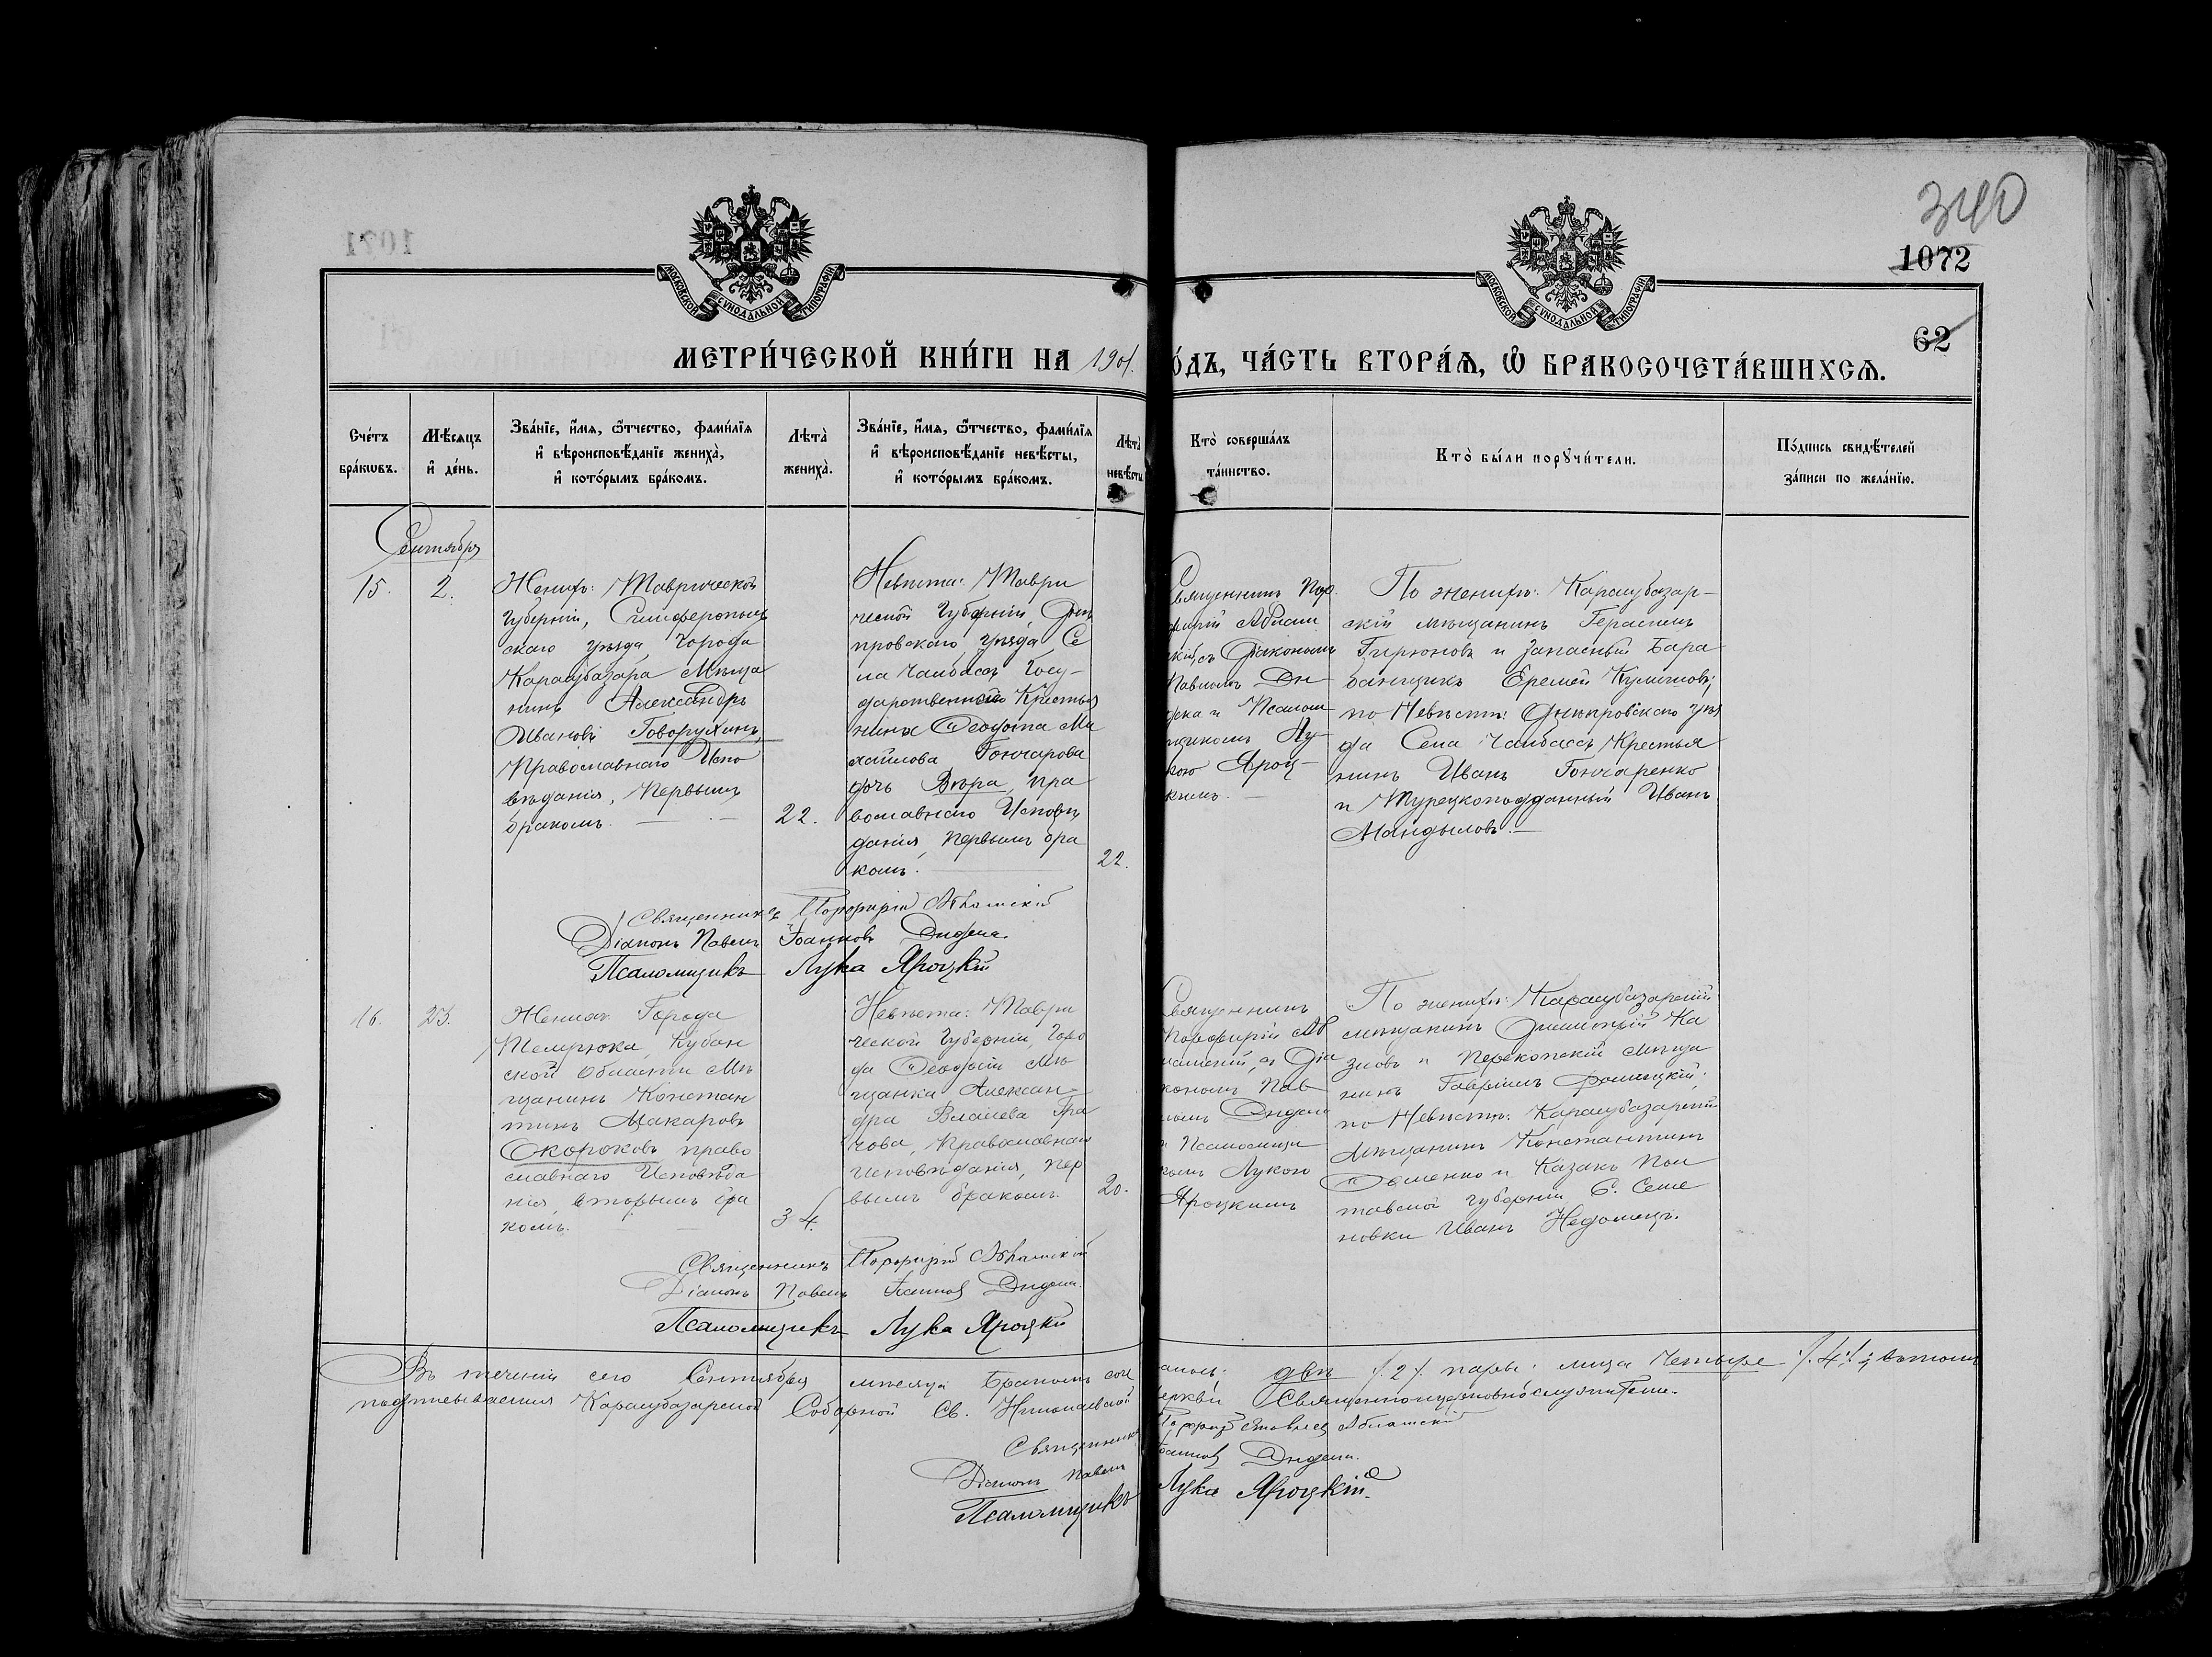 340
1071
1072
62
МОСКОВСКОЙ СѴНОДАЛЬНОЙ ТИПОГРАФІИ
МОСКОВСКОЙ СѴНОДАЛЬНОЙ ТИПОГРАФІИ
МЕТРИ́ЧЕСКОЙ КНИ́ГИ НА 1901.
О́ДЪ, ЧА́СТЬ ВТОРА́Ѧ, Ѡ БРАКОСОЧЕТА́ВШИХСѦ.
Сче́тъ
бра́кѡвъ.
Мѣ́сѧцъ
и де́нь.
Зва́нїе, и́мѧ, ѻ́тчество, фами́лїѧ
и вѣроисповѣ́данїе жениха̀,
и кото́рымъ бра́комъ.
Лѣта̀
жениха̀.
Зва́нїе, и́мѧ, ѻ́тчество, фами́лїѧ
и вѣроисповѣ́данїе невѣ́сты,
и кото́рымъ бра́комъ.
Лѣта̀
невѣ́сты
Кто̀ соверша́лъ
та́инство.
Кто̀ бы́ли порꙋчи́тели.
По́дпись свидѣ́телей
за́писи по жела́нїю.
Сентября
15.
2.
Женихъ: Таврической
Губерніи, Симферополь
скаго уѣзда города
Карасубазара Мѣща
нинъ Александръ
Ивановъ Говорухинъ,
Православнаго Испо
вѣданія, первымъ
бракомъ.
22.
Невѣста: Таври
ческой Губерніи, Днѣ
провскаго уѣзда Се
ла Чалбасъ Госу-
дарственнаго Крестья
нина Ѳеодота Ми
хайлова Гончарова
дочь Вѣра, пра
вославнаго Исповѣ
данія, первымъ бра
комъ.
22.
Священникъ Пор
фирій
скій съ Діакономъ
Павломъ Ди
дѣка и Псалом
щикомъ Лу-
кою Яроц-
кимъ.
По женихѣ: Карасубазар-
скій мѣщанинъ Герасимъ
Гирюновъ и Запасный Бара
банщикъ Еремей
по Невѣстѣ: Днѣпровскаго уѣз
да Села Чалбасъ Крестья
нинъ Иванъ Гончаренко
и Турецкоподданный Иванъ
Мандыловъ.
Священникъ Порфирій
Діаконъ Павелъ Іоанновъ
Псаломщикъ Лука Яроцкій
16.
23.
Женихъ: Города
Темрюка, Кубан
ской Области Мѣ
щанинъ Констан
тинъ Макаровъ
Скороковъ право
славнаго Исповѣда
нія, вторымъ бра
комъ.
34.
Невѣста: Таври
ческой Губерніи, горо
да Ѳеодосіи Мѣ
щанка Алексан
дра Гра
чова, Православнаго
Исповѣданія, пер
вымъ бракомъ.
20.
Священникъ
Порфирій
съ Діа
кономъ Пав
ломъ
и Псаломщи
комъ Лукою
Яроцкимъ
По женихѣ: Карасубазарскій
мѣщанинъ Димитрій Ка
зновъ и Перекопскій Мѣща
нинъ Гавріилъ
по Невѣстѣ: Карасубазарскій
Мѣщанинъ Константинъ
и Казакъ Пол
тавской губерніи С. Семе
новки Иванъ
Священникъ Порфирій
Діаконъ Павелъ Іоанновъ
Псаломщикъ Лука Яроцкій
Въ теченіи сего Сентября мѣсяца Бракомъ соче
тались: двѣ /.2/. пары: лица Четыре /.4./; въ томъ
подписываемся Карасубазарской Соборной Св. Николаевской
Церкви Священноцерковнослужители.
Священникъ
Діаконъ Павелъ Іоанновъ
Псаломщикъ Лука Яроцкій.